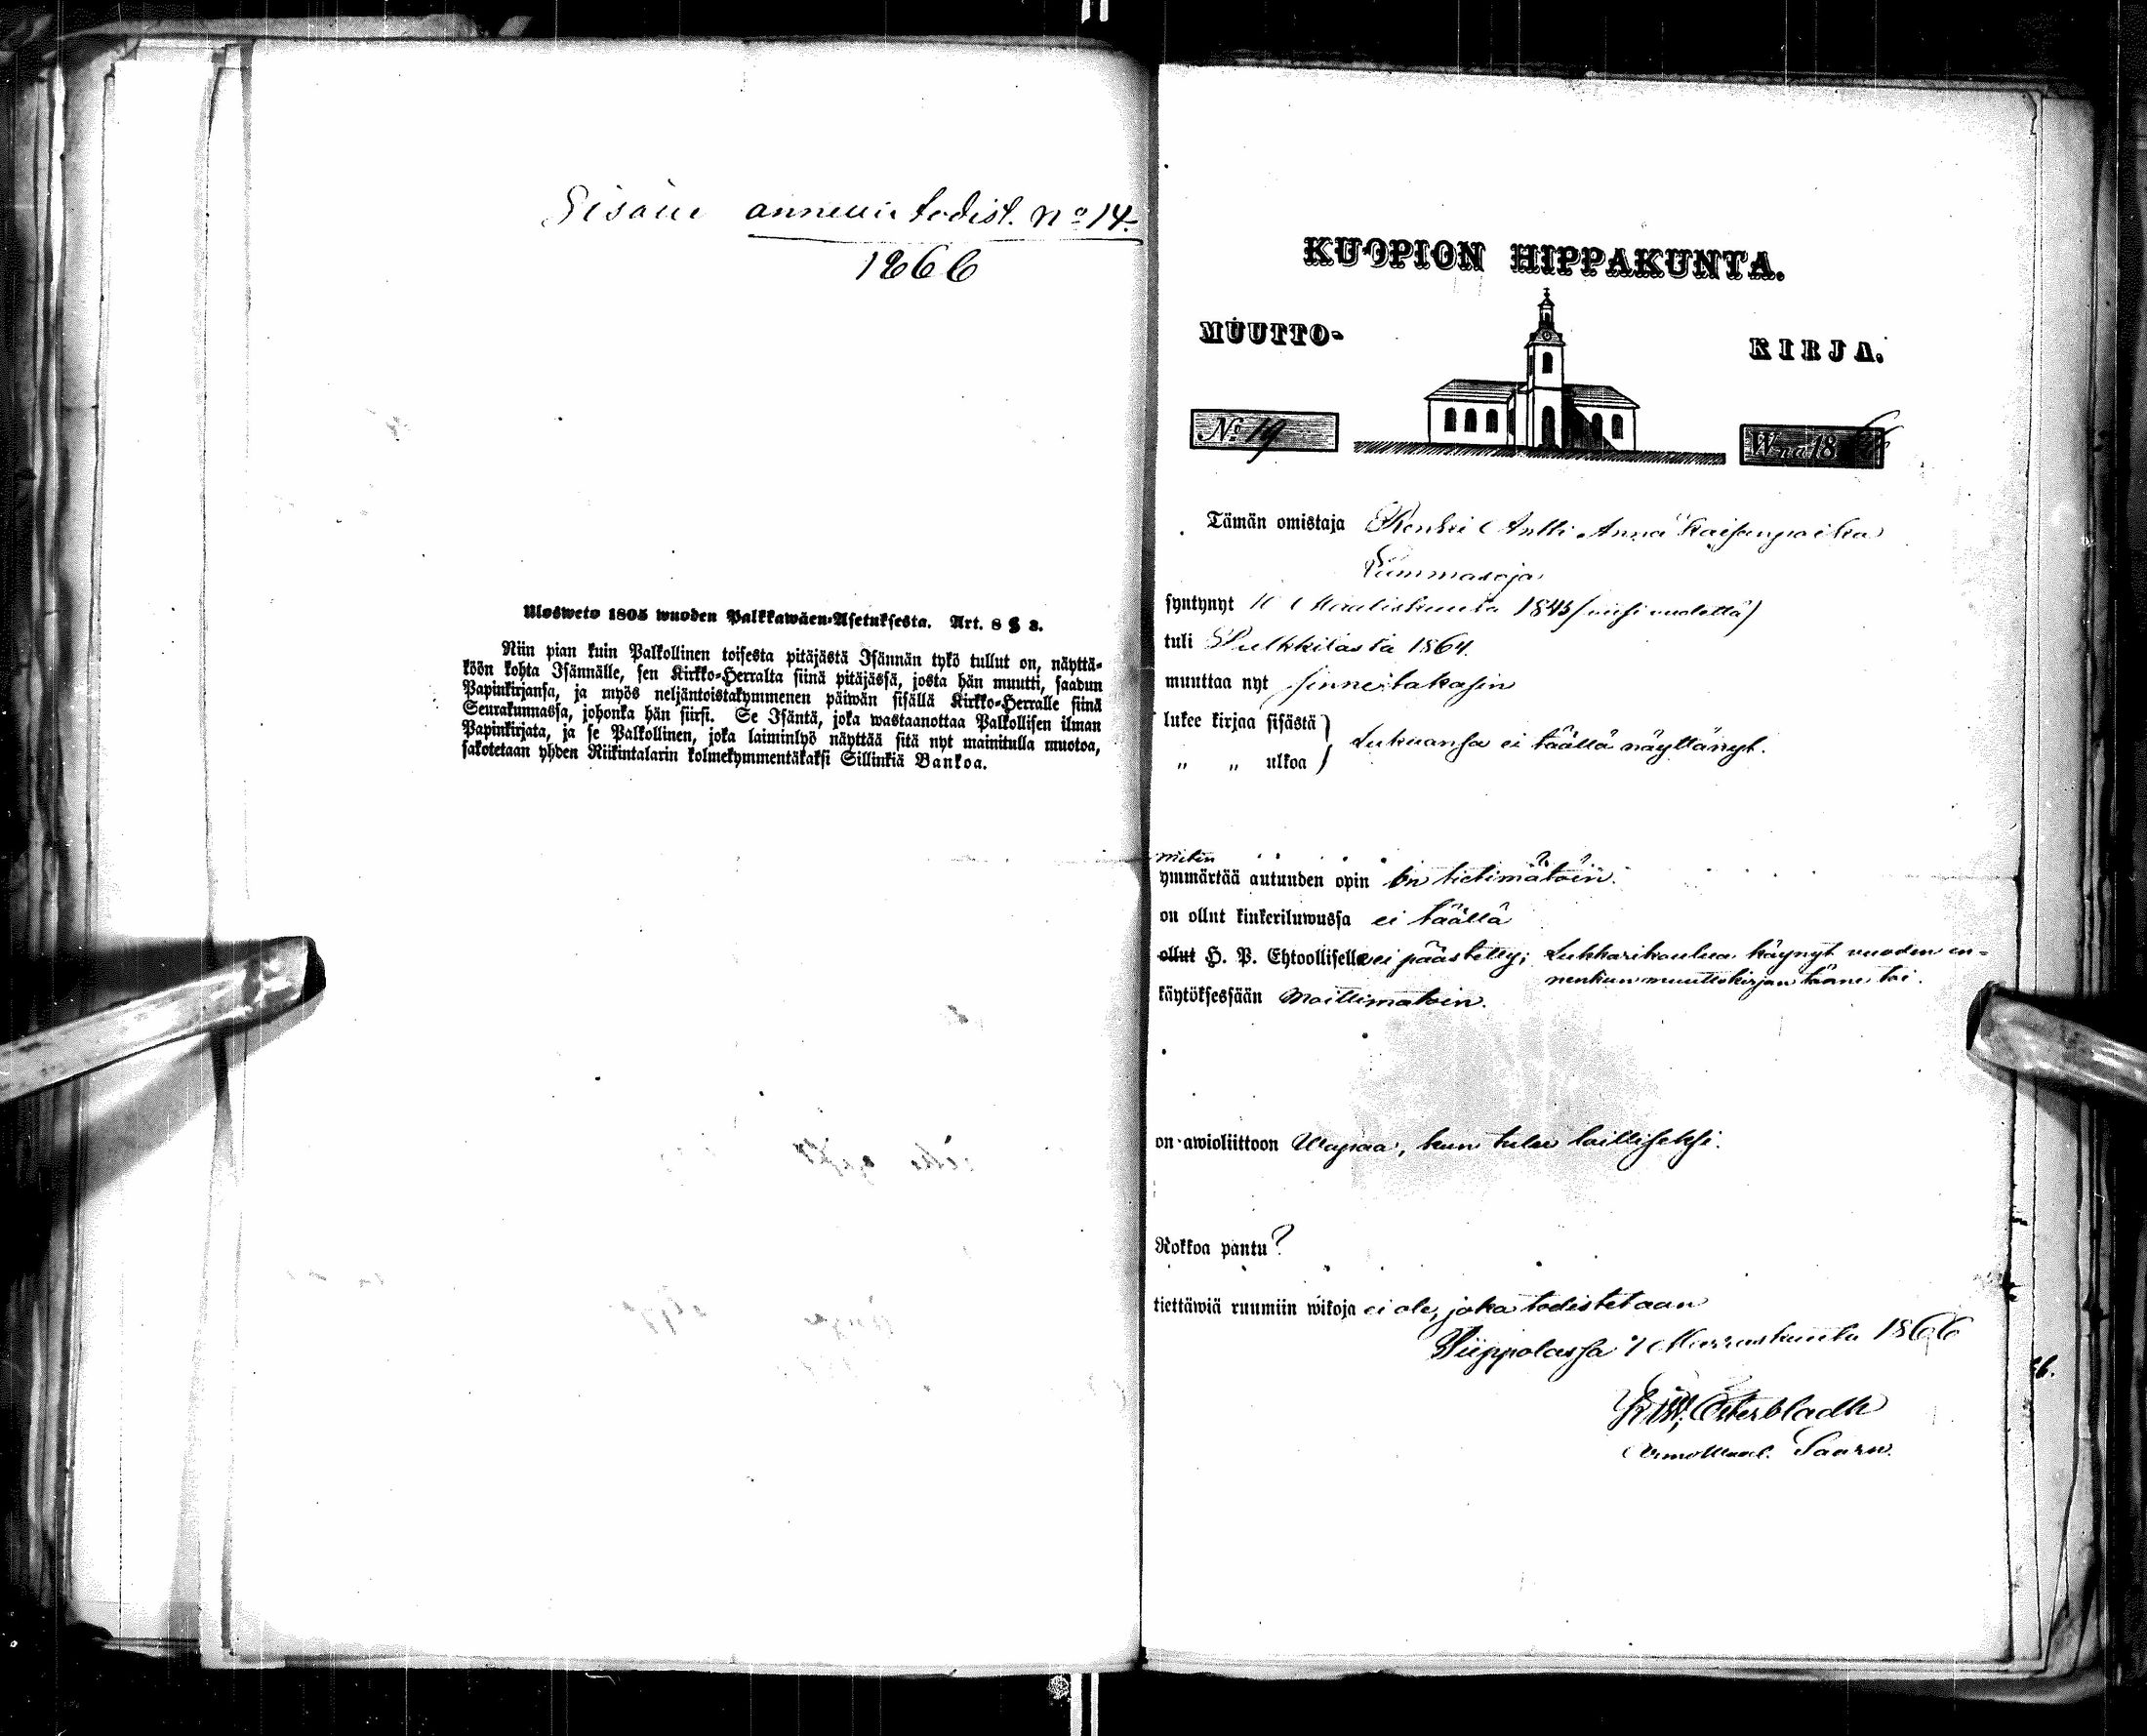 Sisään annettu todist. No 14.
1866
Ulosweto 1805 wuoden Palkkawäen-Asetuksesta. Art. 8 § 3.
Niin pian kuin Palkollinen toisesta pitäjästä Isännän tykö tullut on, näyttä-
köön kohta Isännälle, sen Kirkko-Herralta siinä pitäjässä, josta hän muutti, saadun
Papinkirjansa, ja myös neljäntoistakymmenen päiwän sisällä Kirkko-Herralle siinä
Seurakunnassa, johonka hän siirsi. Se Isäntä, joka wastaanottaa Palkollisen ilman
Papinkirjata, ja se Palkollinen, joka laiminlyö näyttää sitä nyt mainitulla muotoa,
sakotetaan yhden Riikintalarin kolmekymmentäkaksi Sillinkiä Bankoa.
KUOPION HIPPAKUNTA.
MUUTTO-
KIRJA.
No 19
W:na 1866
Tämän omistaja Renki Antti Anna Kaisanpoika
Lummasoja
syntynyt 10 Maaliskuuta 1845 (viisi viidettä)
tuli Pulkkilasta 1864.
muuttaa nyt sinne takasin
lukee kirjaa sisästä
" " ulkoa
Lukuansa ei täällä näyttänyt.
miten
ymmärtää autuuden opin on tietimätöin.
on ollut kinkeriluwussa ei täällä
ollut H. P. Ehtoollisella ei päästetty; Lukkarikoulua käynyt vuoden en-
nenkun muuttokirjan tänne toi.
käytöksessään Moittimatoin.
on awioliittoon Wapaa, kun tulee lailliseksi.
Rokkoa pantu?
tiettäwiä ruumiin wikoja ei ole, joka todistetaan
Piippolassa 7 Marraskuuta 1866
Österbladh
Saarn.